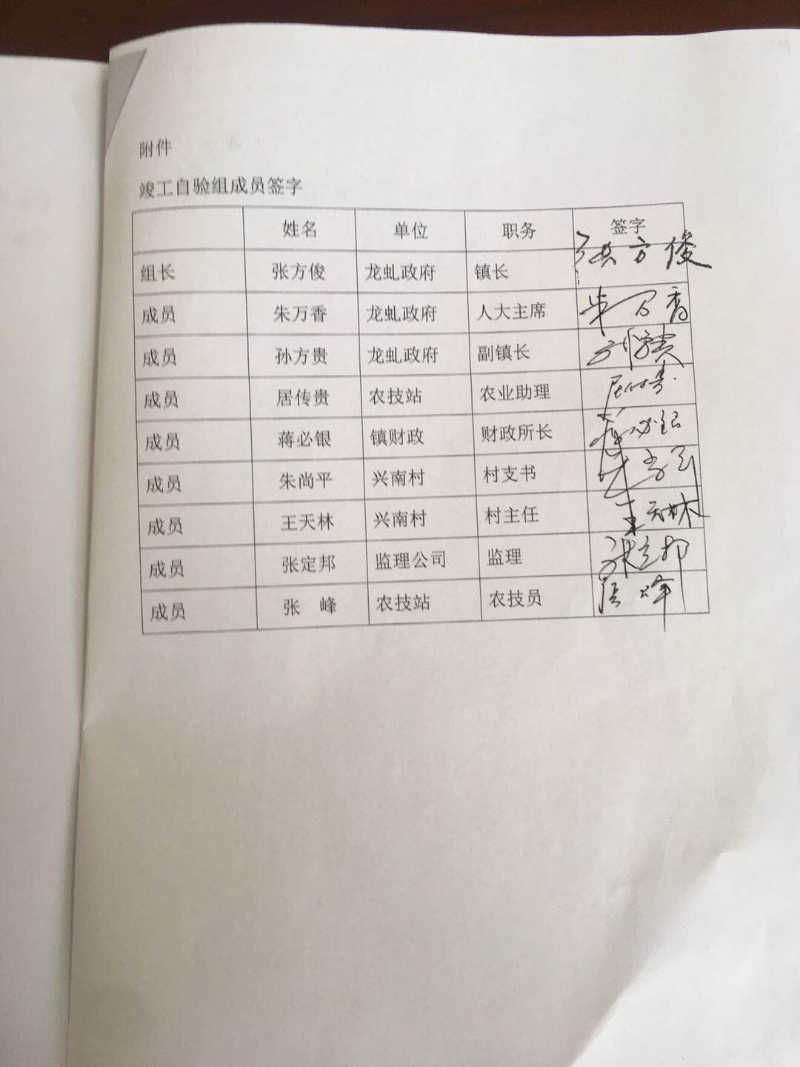 附件
竣工自验组成员签字
姓名 单位 职务 签字
组长 张方俊 龙虬政府 镇长 张方俊
成员 朱万香 龙虬政府 人大主席 朱万香
成员 孙方贵 龙虬政府 副镇长
成员 居传贵 农技站 农业助理
成员 蒋必银 镇财政 财政所长 蒋必银
成员 朱尚平 兴南村 村支书
成员 王天林 兴南村 村主任 王天林
成员 张定邦 监理公司 监理 张定邦
成员 张 峰 农技站 农技员 张峰